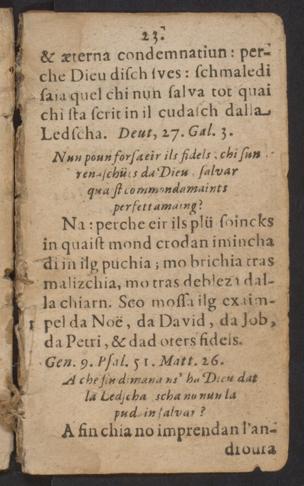 23.
& æterna condemnatiun : per-
che Dieu disch sves : schmaledi
saia quel chi nun salva tot quai
chi sta scrit in il cudasch dalla
Ledscha. Deut, 27. Gal. 3.
Nun poun forsa eir ils fidels, chi sun
renaschüts da Dieu, salvar
quaist commandamaints
perfettamaing?
Na : perche eir ils plü soincks
in quaist mond crodan imincha
di in ilg puchia ; mo brichia tras
malizchia, mo tras deblezza dal-
la chiarn. Seo mossa ilg exaim-
pel da Noë, da David, da Job,
da Petri, & dad oters fidels.
Gen. 9. Psal. 51. Matt. 26.
A che fin dimana ns' ha Dieu dat
la Ledscha scha nu nun la
pudain salvar?
A fin chia no imprendan l'an-
droura